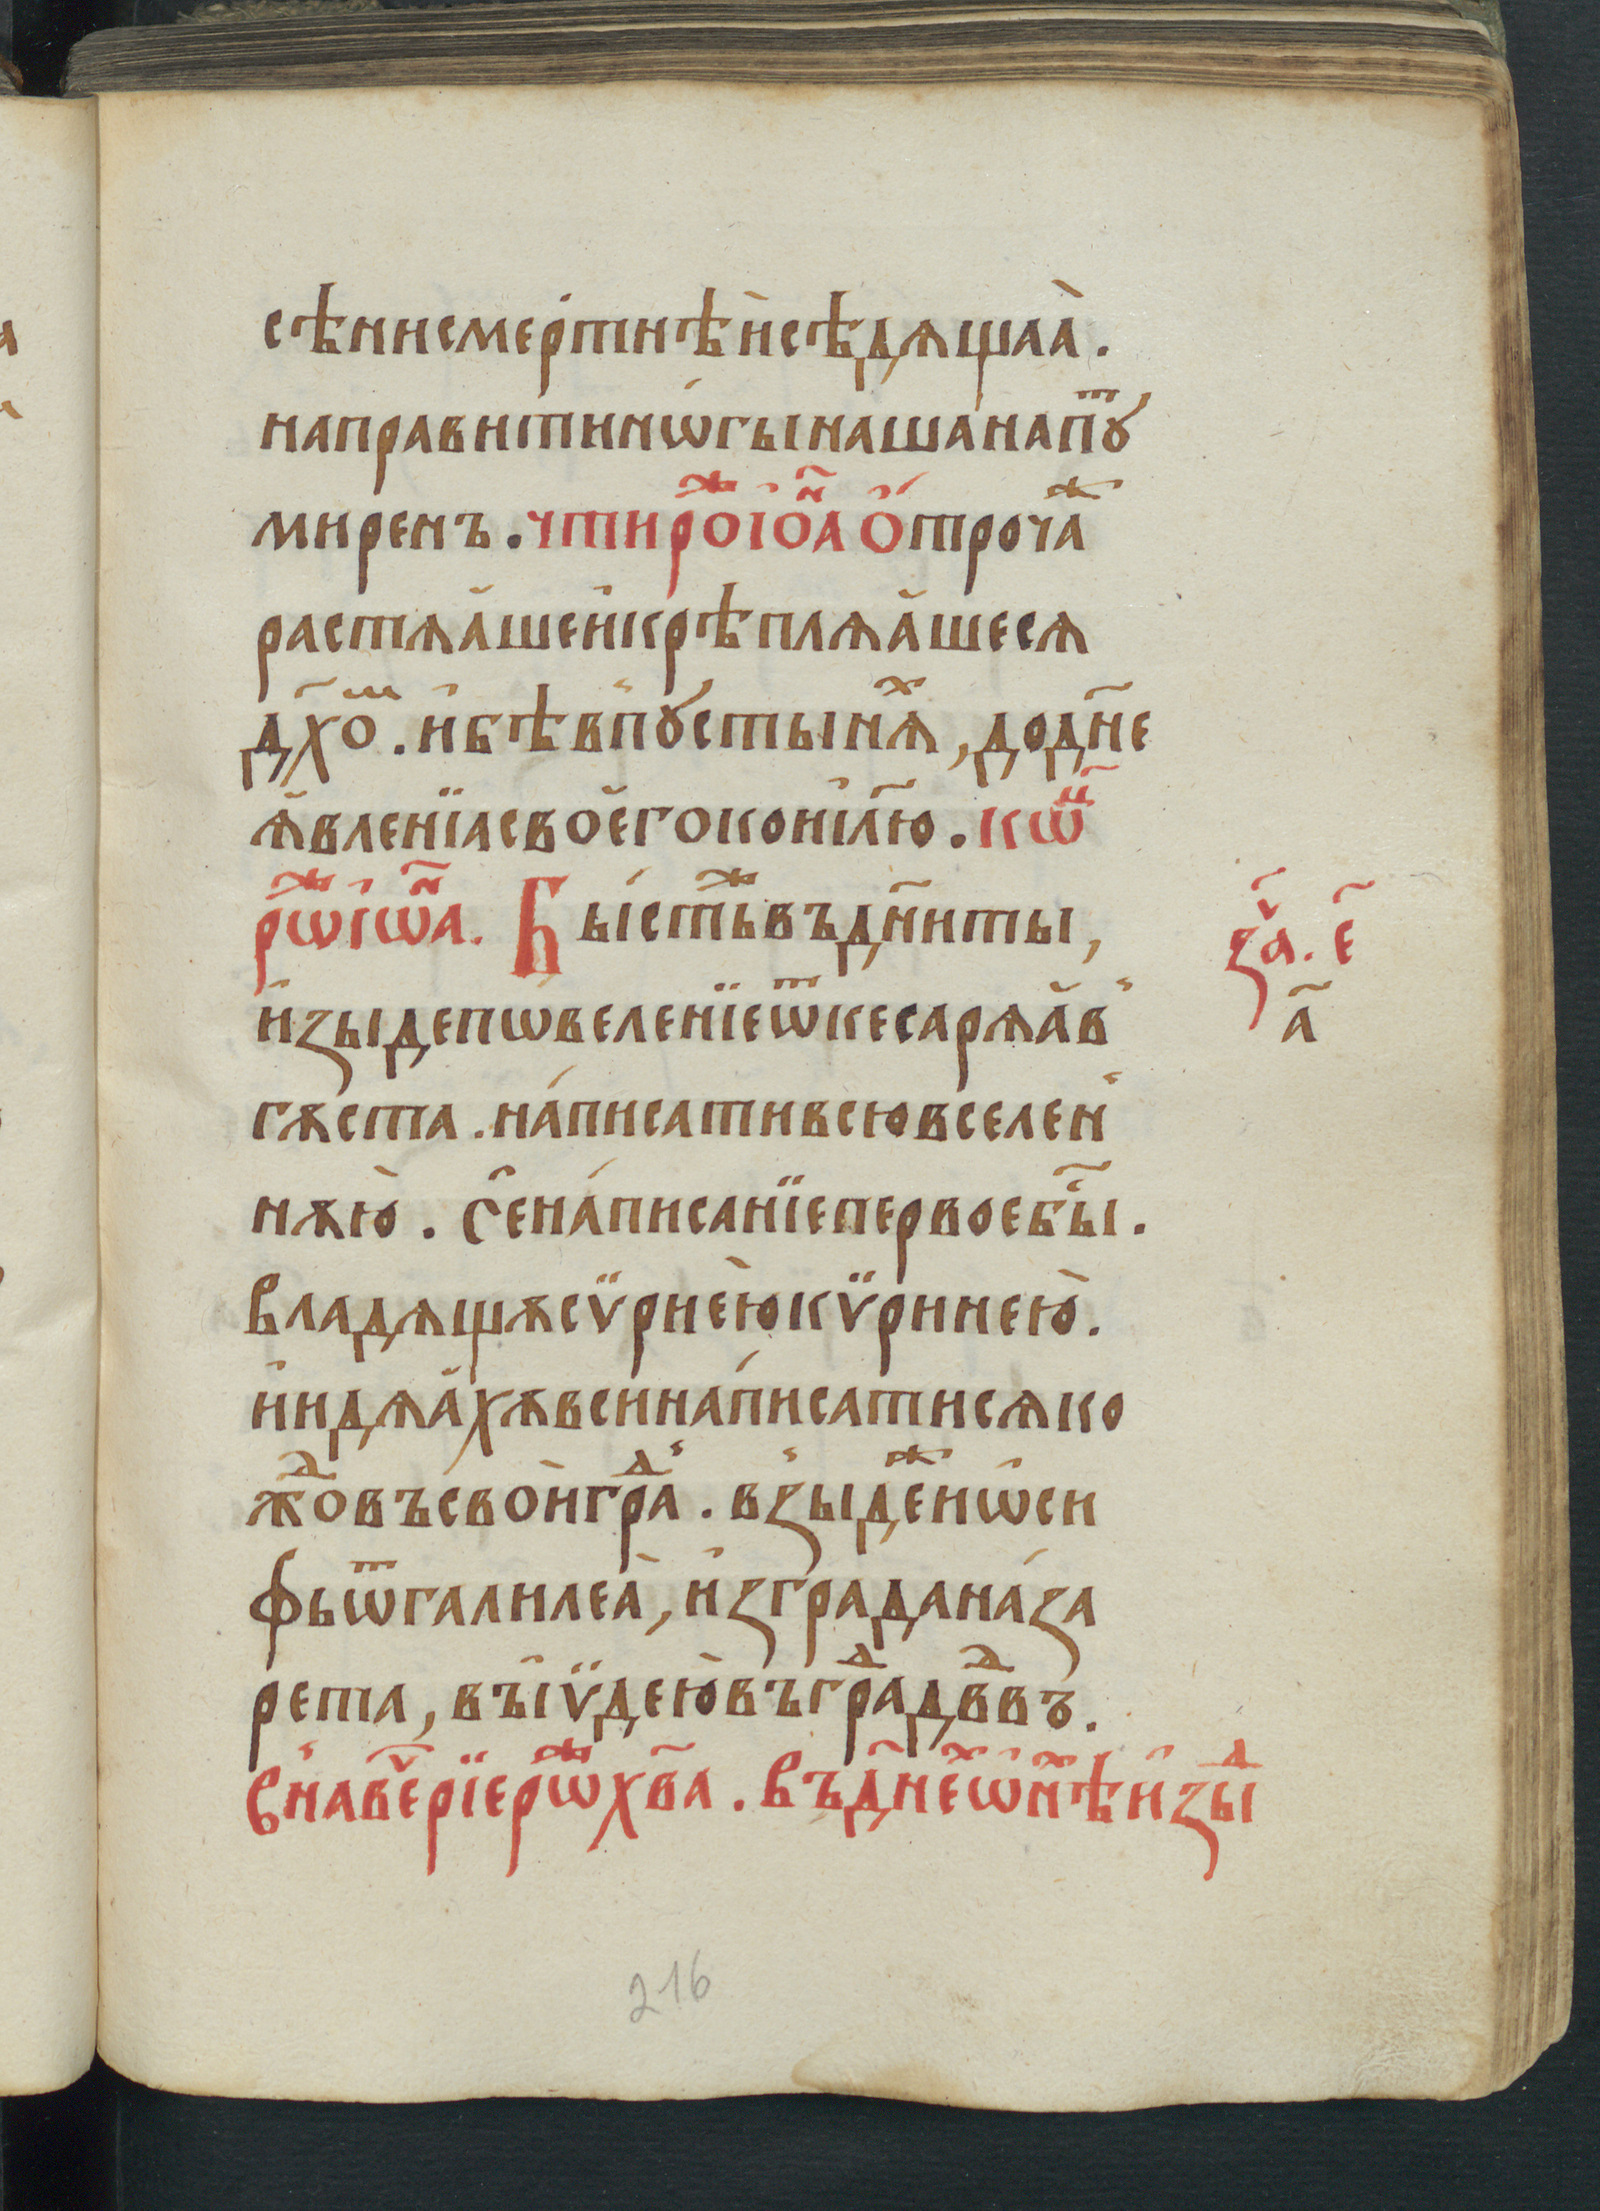 сѣнисмертнѣѝсѣдѧщаа̀.
направитинѡ́гынаша́напⷮꙋ́
миренъ.чтирⷤоіо҃ⷩа О҆́трочаⷤ
растѧа҆шеи҆крѣплѧа҆шесѧ
дх҃оⷨ. и҆бѣвпꙋ́стынѧⷯ, додн҃е
ꙗ҆вленїасвоегокоиї҆л҃ю. кѡⷰ҇
рⷤѡіѡ҃ⷩа. Бы́стьⷤвъдн҃иты,
и҆зыдепѡ́веленїеѿкесарѧа҆в
гѫста. на́писативсювселен
нѫю̀. Се҆на́писанїепервоебы҇.
владѧщѫсѵ̈риѐюкѵ̈ринею̀.
и҆идѧа҆хѫвсина́писатисѧко
жⷣовъсвоѝграⷣ. взыⷤдеи҆ѡ҆си
фьѿгалилеа̀, и҆зграданаза́
рета, въі҆ѵ̈дею̀въграⷣдвⷣвъ.
Вна́веⷱ҇рїерⷤѡхв҃а. въдн҃еⷯѡ҆нѣⷯи҆зыⷣ
заⷱ҇. е҃
а҃
216